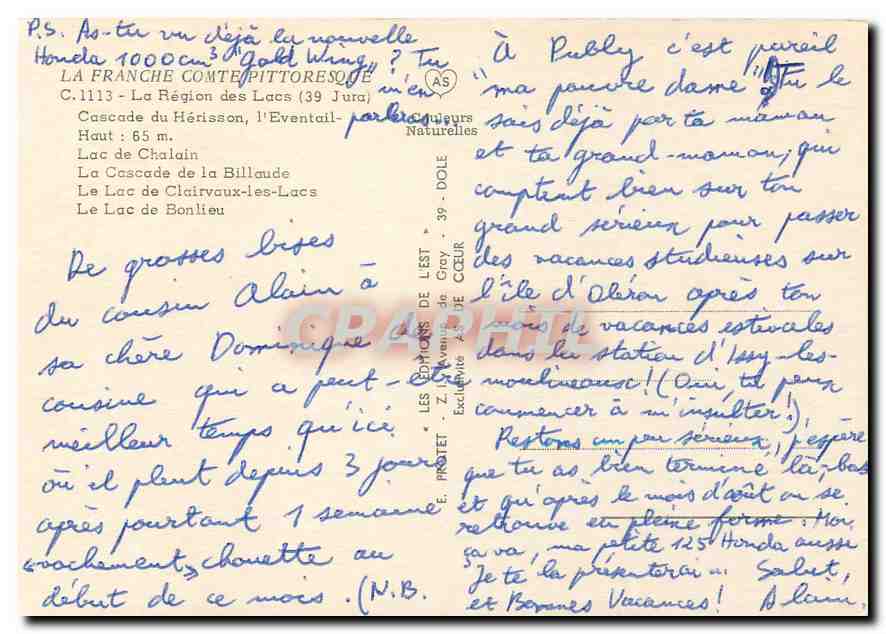 P.S. As-tu vu déjà la nouvelle
Honda 1000cm³ "Gold Wing" ? Tu
m'en
parleras...
LA FRANCHE COMTE PITTORESQUE
C.1113 - La Région des Lacs (39 Jura)
Cascade du Hérisson, l'Eventail-
Haut : 65 m.
Lac de Chalain
La Cascade de la Billaude
Le Lac de Clairvaux-les-Lacs
Le Lac de Bonlieu
AS
Couleurs
Naturelles
De grosses bises
du cousin Alain à
sa chère Dominique de
cousine qui a peut-être
meilleur temps qu'ici
où il pleut depuis 3 jours
après pourtant 1 semaine
"vachement" chouette au
début de ce mois. (N.B.
E. PROTET - Z. I. Avenue de Gray - 39 - DOLE
« LES EDITIONS DE L'EST »
Exclusivité AS DE CŒUR
À Publy c'est pareil
"ma pauvre dame"! Tu le
sais déjà par ta maman
et ta grand-maman, qui
comptent bien sur ton
grand sérieux pour passer
des vacances studieuses sur
l'île d'Oléron après ton
mois de vacances estivales
dans la station d'Issy-les-
moulineaux! (Oui, tu peux
commencer à m'insulter!)
Restons un peu sérieux, j'espère
que tu as bien terminé là-bas
et qu'après le mois d'août on se
retrouve en pleine forme. Moi,
ça va, ma petite 125 Honda aussi
Je te la présenterai... Salut,
et Bonnes Vacances! Alain.
CPAPHIL